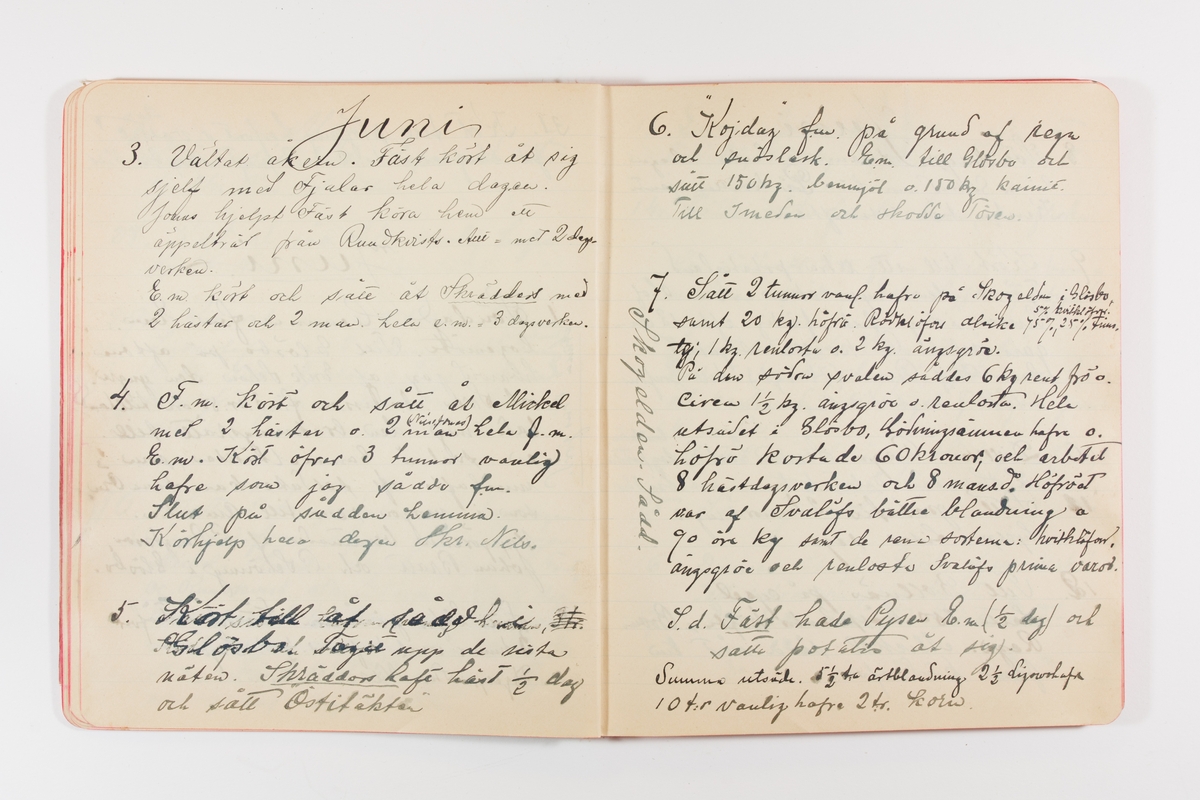 Juni
3. Vältat åkern. Fäst kört åt sig
sjelf med Fjalar hela dagen.
Jonas hjelpt Fäst köra hem ett
äppelträ från Rundkvists. = med 2 dags-
verken.
E.m. kört och sått åt Skräddors med
2 hästar och 2 man. hela e.m. = 3 dagsverken.
4. F.m. kört och sått åt Mickel
med 2 hästar o. 2 man hela f.m.
E.m. Kört öfver 3 tunnor vanlig
hafre som jag sådde f.m.
Slut på sådden hemma.
Körhjelp hela dagen Skr. Nils.
5. Kört till åt sådd
Glösbo. Tagit upp de sista
näten. Skräddors haft häst ½ dag
och sått Östitäkten
6. "Kojdag" f.m. på grund af regn
och snöslask. E.m. till Glösbo och
sått 150 kg. benmjöl o. 150 kg kainit.
Till Smeden och skodde Tösen.
Skogelden. Sådd.
7. Sått 2 tunnor vanl. hafre på Skogelden i Glösbo,
samt 20 kg. höfrö. Rödklöfver alsike 75%, 25% Timo-
5% hvitklöfver.
tej; 1 kg. renlosta o. 2 kg. ängsgröe.
På den södra svalen såddes 6 kg rent frö o.
Circa 1½ kg. ängsgröe o. renlosta. Hela
utsädet i Glösbo, Gödningsämnen hafre o.
höfrö kostade 60 kronor, och arbetet
8 hästdagsverken och 8 mansd. Höfröet
var af Svalöfs bättre blandning a
90 öre kg samt de rena sorterna: hvitklöfver,
ängsgröe och renlosta Svalöfs prima varor.
S.d. Fäst hade Pejsen E.m (½ dag) och
satte potatis åt sig.
Summa utsäde. 5½ tr ärtblandning 2½ Ligowohafre
10 t:r vanlig hafre 2 tr. Korn.